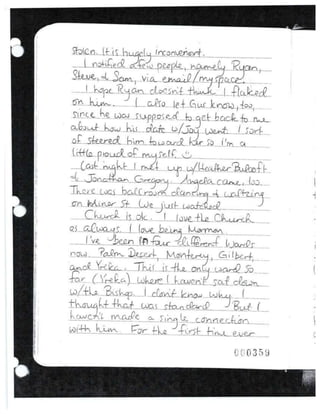 stolen. It is hugely inconvenient.
I notified a few people, namely Ryan,
Steve, & Sam, via email/myspace.
I hope Ryan doesn't think I flaked
on him. I also let Gus know, too,
since he was supposed to get back to me
about how his date w/Joy went. I sort
of steered him toward her so I'm a
little proud of myself. ☺
Last night I met up w/Heather
& Jonathan Gregory. Angela came, too.
There was ballroom dancing & waltzing
on Miner St. We just watched.
Church is ok. I love the Church
as always. I love being Mormon.
I've been in four different Wards
now. Palm Desert, Monterey, Gilbert,
and Yreka. This is the only ward so
far (Yreka) where I haven't sat down
w/the Bishop. I don't know why. I
thought that was standard. But I
haven't made a single connection
with him. For the first time ever
000359